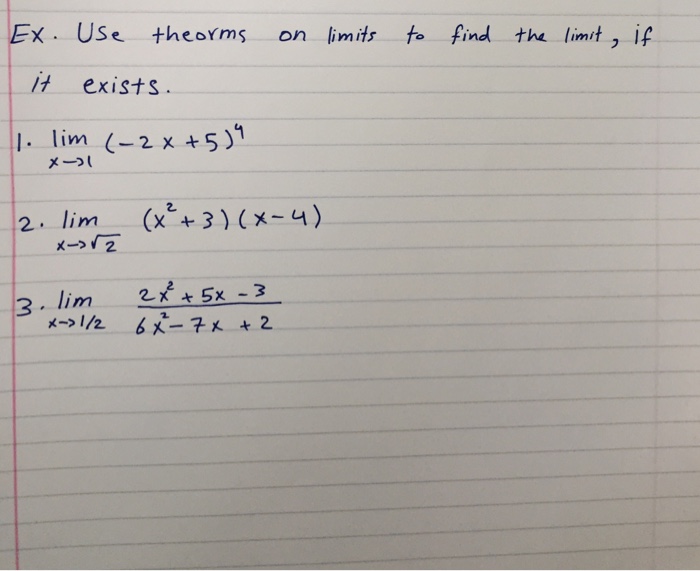 Ex. Use theorms on limits to find the limit, if
it exists.
1. lim (-2x+5)⁴
x→1
2. lim (x²+3)(x-4)
x→√2
3. lim 2x²+5x-3
x→1/2 6x²-7x+2